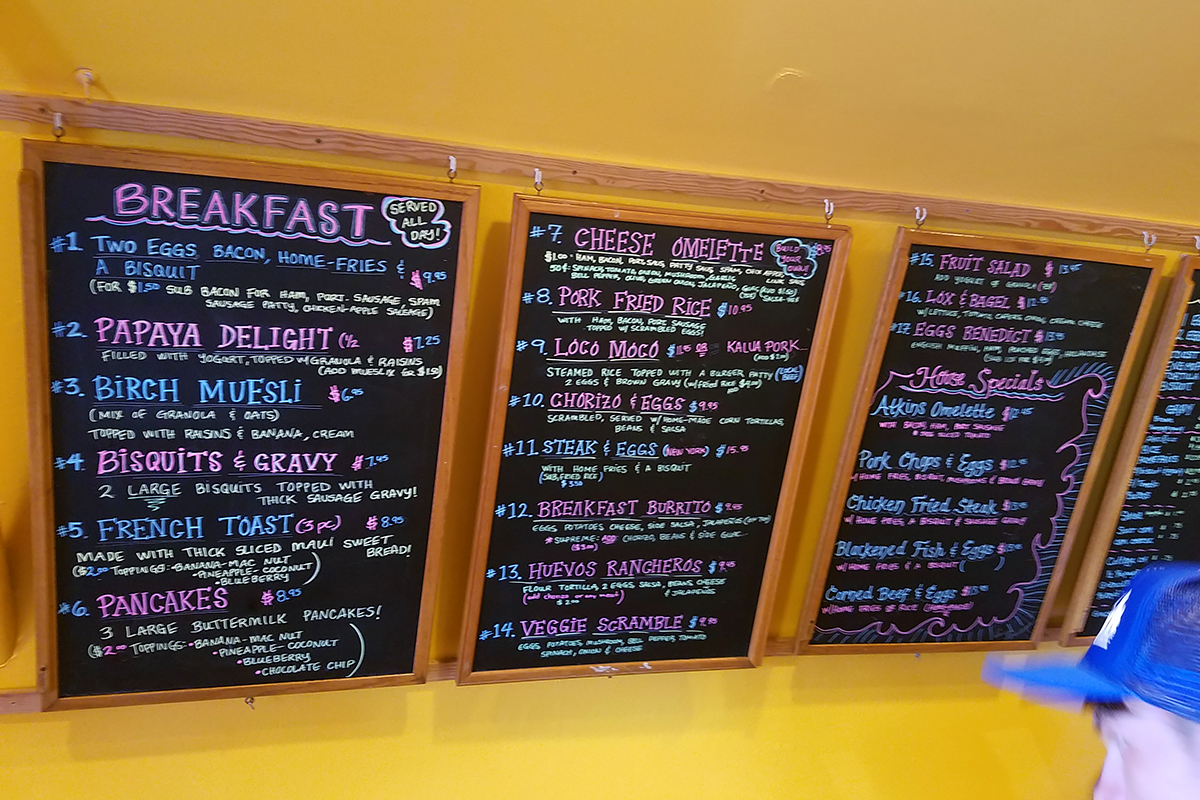 BREAKFAST
SERVED
ALL
DAY!
#1. TWO EGGS, BACON, HOME-FRIES &
A BISQUIT $9.95
(FOR $1.50 SUB BACON FOR HAM, PORT. SAUSAGE, SPAM
SAUSAGE PATTY, CHICKEN-APPLE SAUSAGE)
#2. PAPAYA DELIGHT (1/2 $7.25
FILLED WITH YOGURT, TOPPED W/GRANOLA & RAISINS
(ADD MUESLIX for $1.50)
#3. BIRCH MUESLI $6.95
(MIX OF GRANOLA & OATS)
TOPPED WITH RAISINS & BANANA, CREAM
#4. BISQUITS & GRAVY $7.45
2 LARGE BISQUITS TOPPED WITH
THICK SAUSAGE GRAVY!
#5. FRENCH TOAST (3 pc) $8.95
MADE WITH THICK SLICED MAUI SWEET
BREAD!
($2.00 TOPPINGS: -BANANA-MAC NUT
-PINEAPPLE-COCONUT
•BLUEBERRY)
#6. PANCAKES $8.95
3 LARGE BUTTERMILK PANCAKES!
($2.00 TOPPINGS: -BANANA-MAC NUT
•PINEAPPLE-COCONUT
•BLUEBERRY
•CHOCOLATE CHIP)
#7. CHEESE OMELETTE
BUILD
YOUR
OWN!
$1.00 - HAM, BACON, PORT. SAUS, PATTY SAUS, SPAM, CHIX APPLE,
LINK SAUS
50¢: SPINACH, TOMATO, ONION, MUSHROOM, GARLIC
BELL PEPPER, OLIVE, GREEN ONION, JALAPEÑO,
#8. PORK FRIED RICE $10.95
WITH HAM, BACON, PORT. SAUSAGE
TOPPED W/ SCRAMBLED EGGS!
#9. LOCO MOCO $11.95 OR KALUA PORK
STEAMED RICE TOPPED WITH A BURGER PATTY (LOCAL
BEEF)
2 EGGS & BROWN GRAVY (w/FRIED RICE
#10. CHORIZO & EGGS $9.95
SCRAMBLED, SERVED W/HOME-MADE CORN TORTILLAS,
BEANS & SALSA
#11. STEAK & EGGS (NEW YORK) $15.95
WITH HOME FRIES & A BISQUIT
(SUB FRIED RICE)
#12. BREAKFAST BURRITO $9.95
EGGS, POTATOES, CHEESE, SIDE SALSA, JALAPEÑOS
*SUPREME: ADD CHORIZO, BEANS & SIDE GUAC
#13. HUEVOS RANCHEROS $9.95
FLOUR TORTILLA, 2 EGGS, SALSA, BEANS, CHEESE
& JALAPEÑOS
(add chorizo or any meat)
$2.00
#14. VEGGIE SCRAMBLE $9.95
EGGS, POTATOES, MUSHROOM, BELL PEPPER, TOMATO
SPINACH, ONION & CHEESE
#15. FRUIT SALAD
ADD YOGURT OR GRANOLA
#16. LOX & BAGEL
W/LETTUCE, TOMATO, CAPERS, ONION, CREAM CHEESE
#17. EGGS BENEDICT
ENGLISH MUFFIN, HAM, POACHED EGGS, HOLLANDAISE
House Specials
Atkins Omelette
WITH BACON, HAM, PORT SAUSAGE
Pork Chops & Eggs
W/HOME FRIES, BISQUIT, MUSHROOMS & BROWN GRAVY
Chicken Fried Steak
W/ HOME FRIES, A BISQUIT & SAUSAGE GRAVY
Blackened Fish & Eggs
W/ HOME FRIES & A BISQUIT
Corned Beef & Eggs
W/HOME FRIES OR RICE (HOMEMADE)